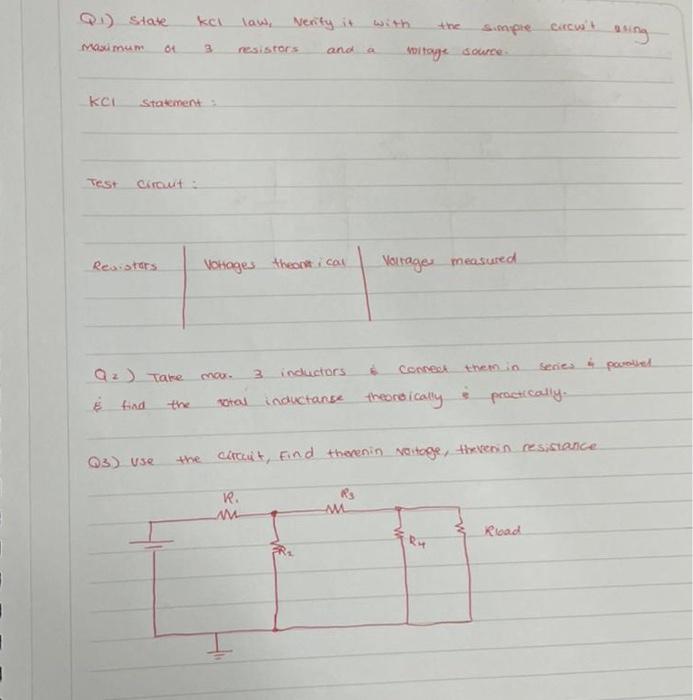 Q1) State KCl law, Verify it with the simple circuit using
maximum of 3 resistors and a voltage source.
KCl Statement :
Test Circuit :
Resistors Voltages theoretical Voltages measured
Q2) Take max. 3 inductors & connect them in series & parallel
& find the total inductance theoretically & practically.
Q3) Use the circuit, Find thevenin voltage, thevenin resistance
R1 R3
R2 R4 Rload